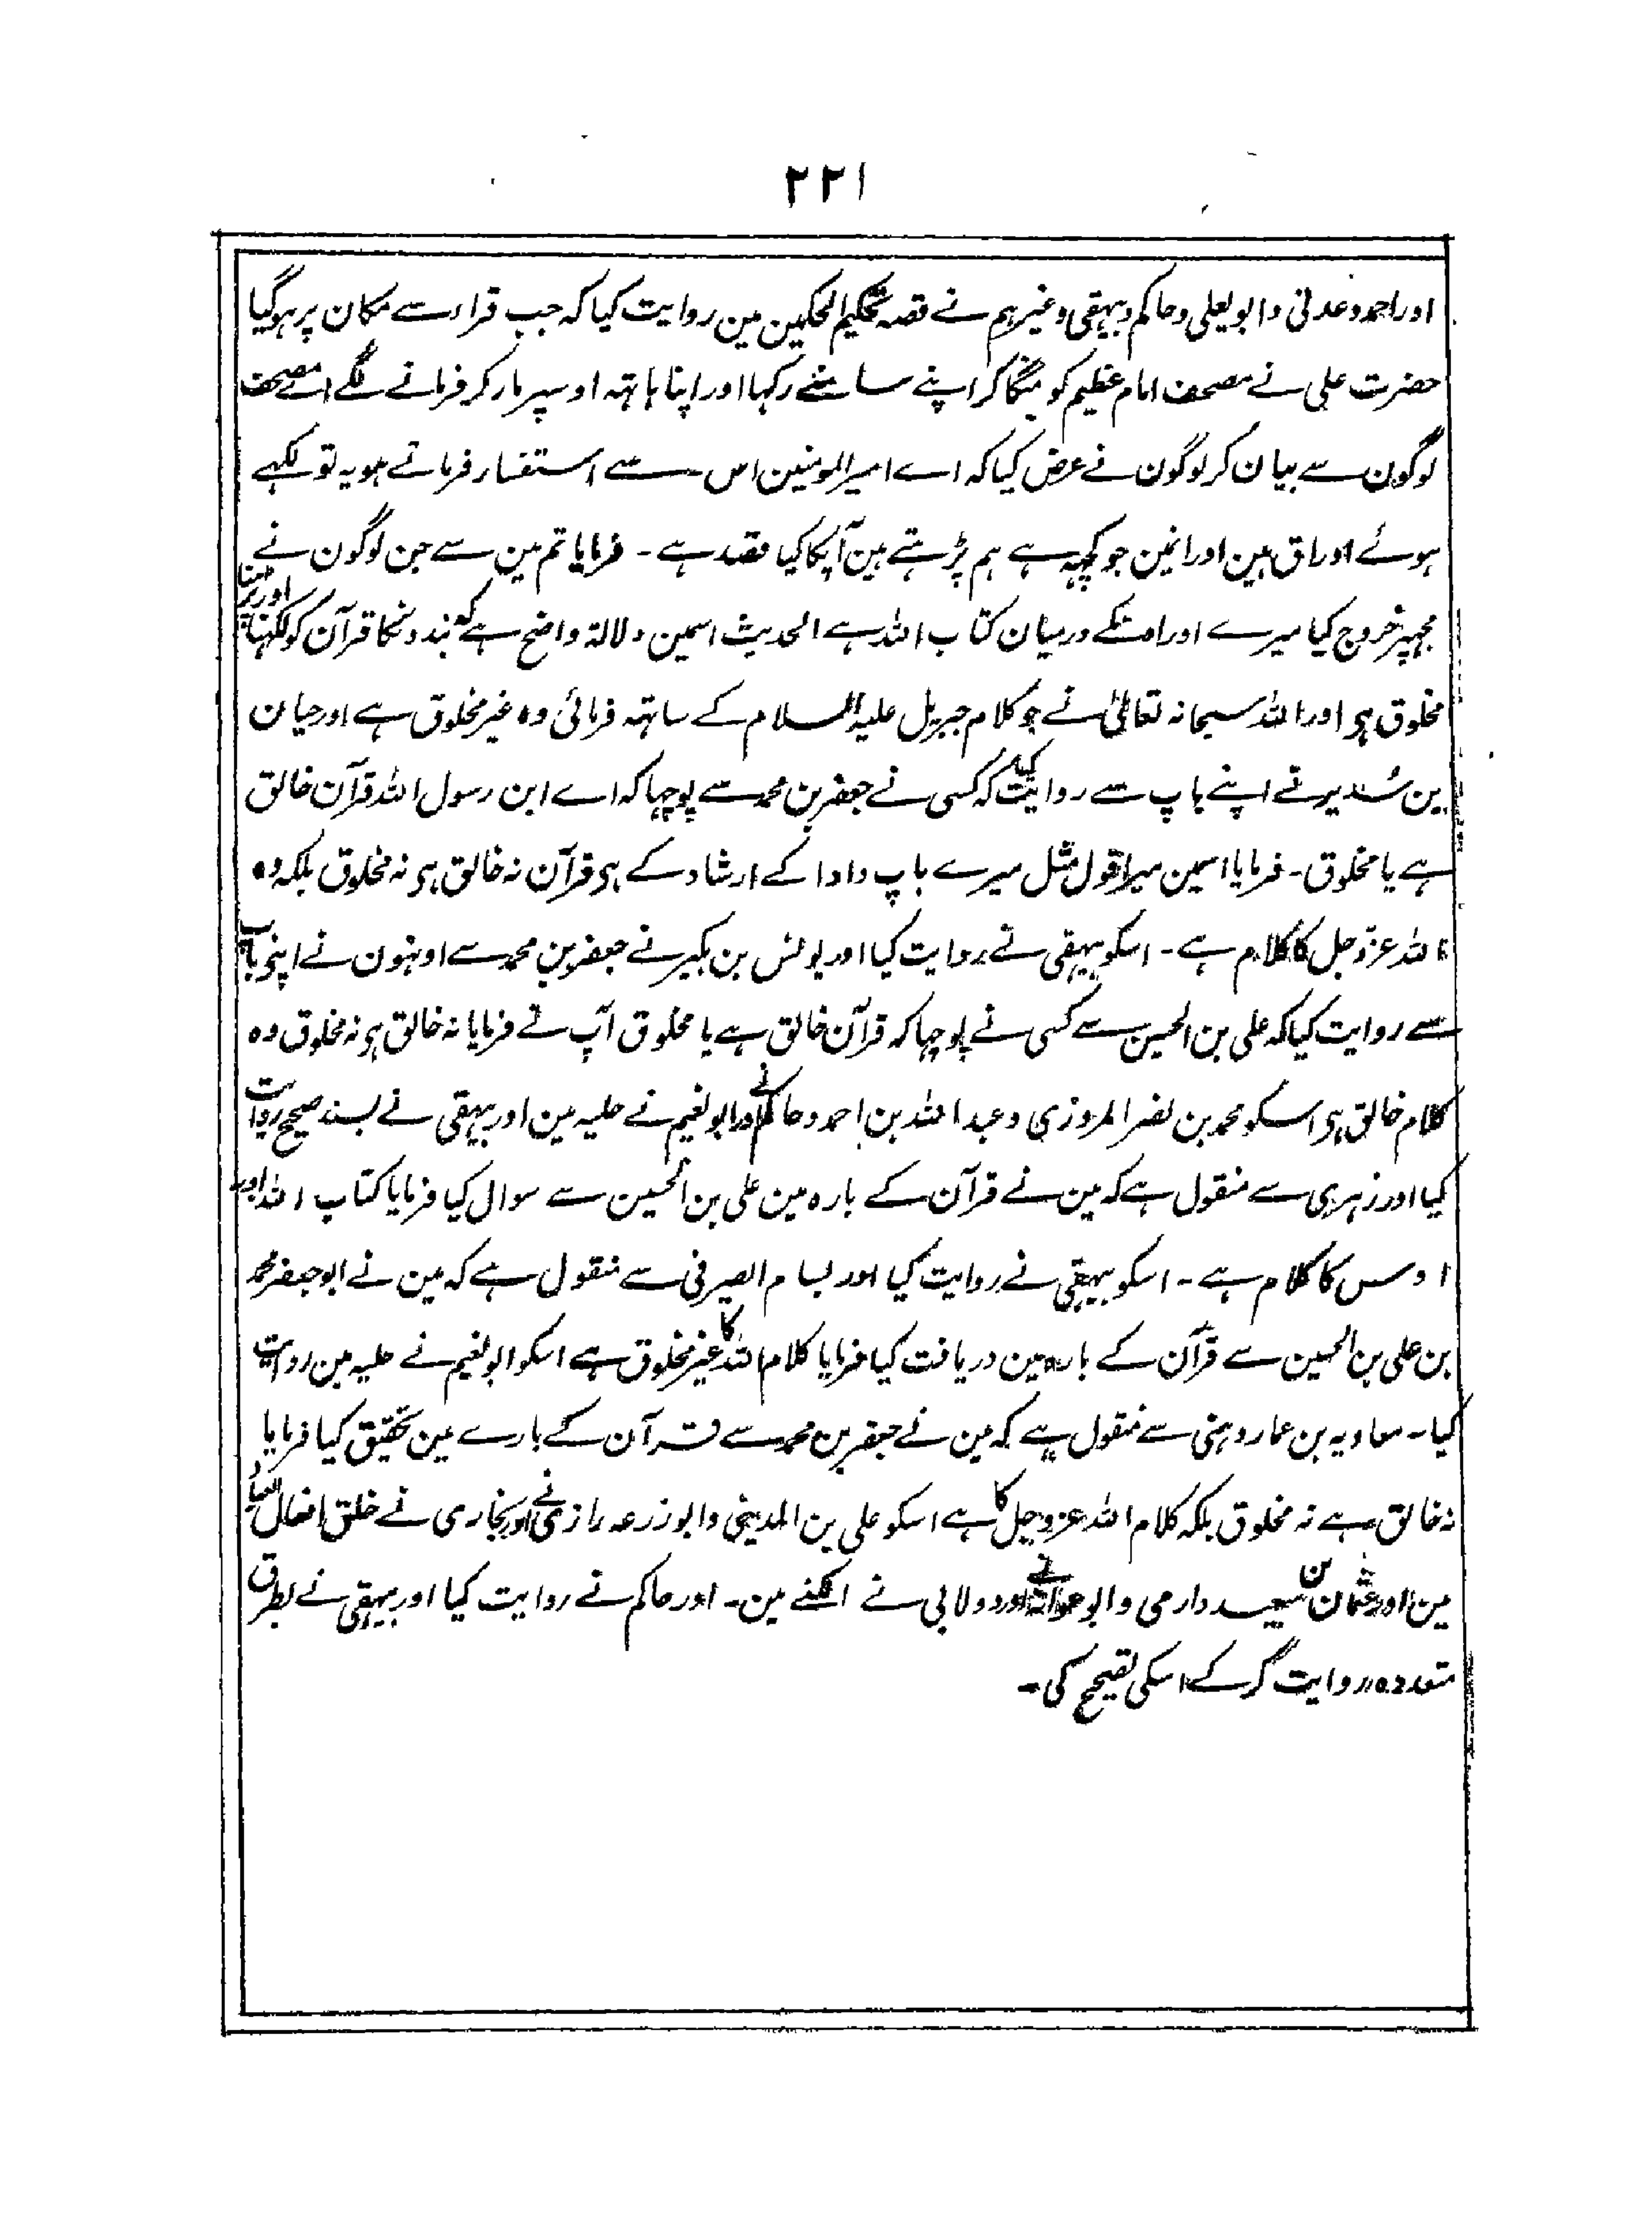 ۲۲۱
اور احمد و عدنی و ابو یعلی و حاکم و بیہقی و غیرہم نے قصہ تحکیم الحکمین مین روایت کیا کہ جب قراء سے مکان پر ہوگیا
حضرت علی نے مصحف امام عظیم کو منگا کر اپنے سامنے رکہا اور اپنا ہاتہہ اوسپر مار کر فرمانے لگے اے مصحف
لوگون سے بیان کر لوگون نے عرض کیا کہ اے امیر المومنین اس سے استفسار فرماتے ہو یہ تو لکہے
ہوئے اوراق ہین اور انمین جو کچہہ ہے ہم پڑہتے ہین آپکا کیا مقصد ہے ۔ فرمایا تم مین سے جن لوگون نے
مجہپر خروج کیا میرے اور اونکے درمیان کتاب اللہ ہے الحدیث اسمین دلالۃ واضح ہے کہ بندونکا قرآن کو لکہنا اور پڑہنا
مخلوق ہی اور اللہ سبحانہ تعالیٰ نے جو کلام جبریل علیہ السلام کے ساتہہ فرمائی وہ غیر مخلوق ہے اور حیان
بن سُدیر نے اپنے باپ سے روایت کیا کہ کسی نے جعفر بن محمد سے پوچہا کہ اے ابن رسول اللہ قرآن خالق
ہے یا مخلوق ۔ فرمایا اسمین میرا قول مثل میرے باپ دادا کے ارشاد کے ہی قرآن نہ خالق ہی نہ مخلوق بلکہ وہ
اللہ عزّ وجل کا کلام ہے ۔ اسکو بیہقی نے روایت کیا اور یونس بن بکیر نے جعفر بن محمد سے اونہون نے اپنی باپ
سے روایت کیا کہ علی بن الحسین سے کسی نے پوچہا کہ قرآن خالق ہے یا مخلوق آپ نے فرمایا نہ خالق ہی نہ مخلوق وہ
کلام خالق ہی اسکو محمد بن نصر المروزی و عبد اللہ بن احمد و حاکم نے اور ابو نعیم نے حلیہ مین اور بیہقی نے بسند صحیح روایت
کیا اور زہری سے منقول ہے کہ مین نے قرآن کے بارہ مین علی بن الحسین سے سوال کیا فرمایا کتاب اللہ اور
اوس کا کلام ہے ۔ اسکو بیہقی نے روایت کیا اور بسام الصیرفی سے منقول ہے کہ مین نے ابو جعفر محمد
بن علی بن الحسین سے قرآن کے بارہ مین دریافت کیا فرمایا کلام اللہ کا غیر مخلوق ہے اسکو ابو نعیم نے حلیہ مین روایت
کیا ۔ معاویہ بن عمار دہنی سے منقول ہے کہ مین نے جعفر بن محمد سے قرآن کے بارے مین تحقیق کیا فرمایا
نہ خالق ہے نہ مخلوق بلکہ کلام اللہ عزوجل کا ہے اسکو علی بن المدینی و ابو زرعہ رازی نے اور بخاری نے خلق افعال العباد
مین اور عثمان بن سعید دارمی و ابو عوانہ نے اور دولابی نے اکنے مین ۔ اور حاکم نے روایت کیا اور بیہقی نے بطرق
متعددہ روایت کرکے اسکی تصحیح کی ۔